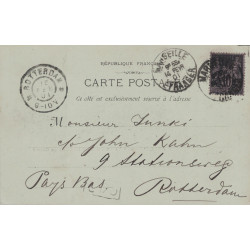 RÉPUBLIQUE FRANÇAISE
CARTE POSTALE
Ce côté est exclusivement réservé à l'adresse
ROTTERDAM
MARSEILLE
ETRANGER
Monsieur
c/o John Kahn
9 Stationsweg
Pays Bas
Rotterdam